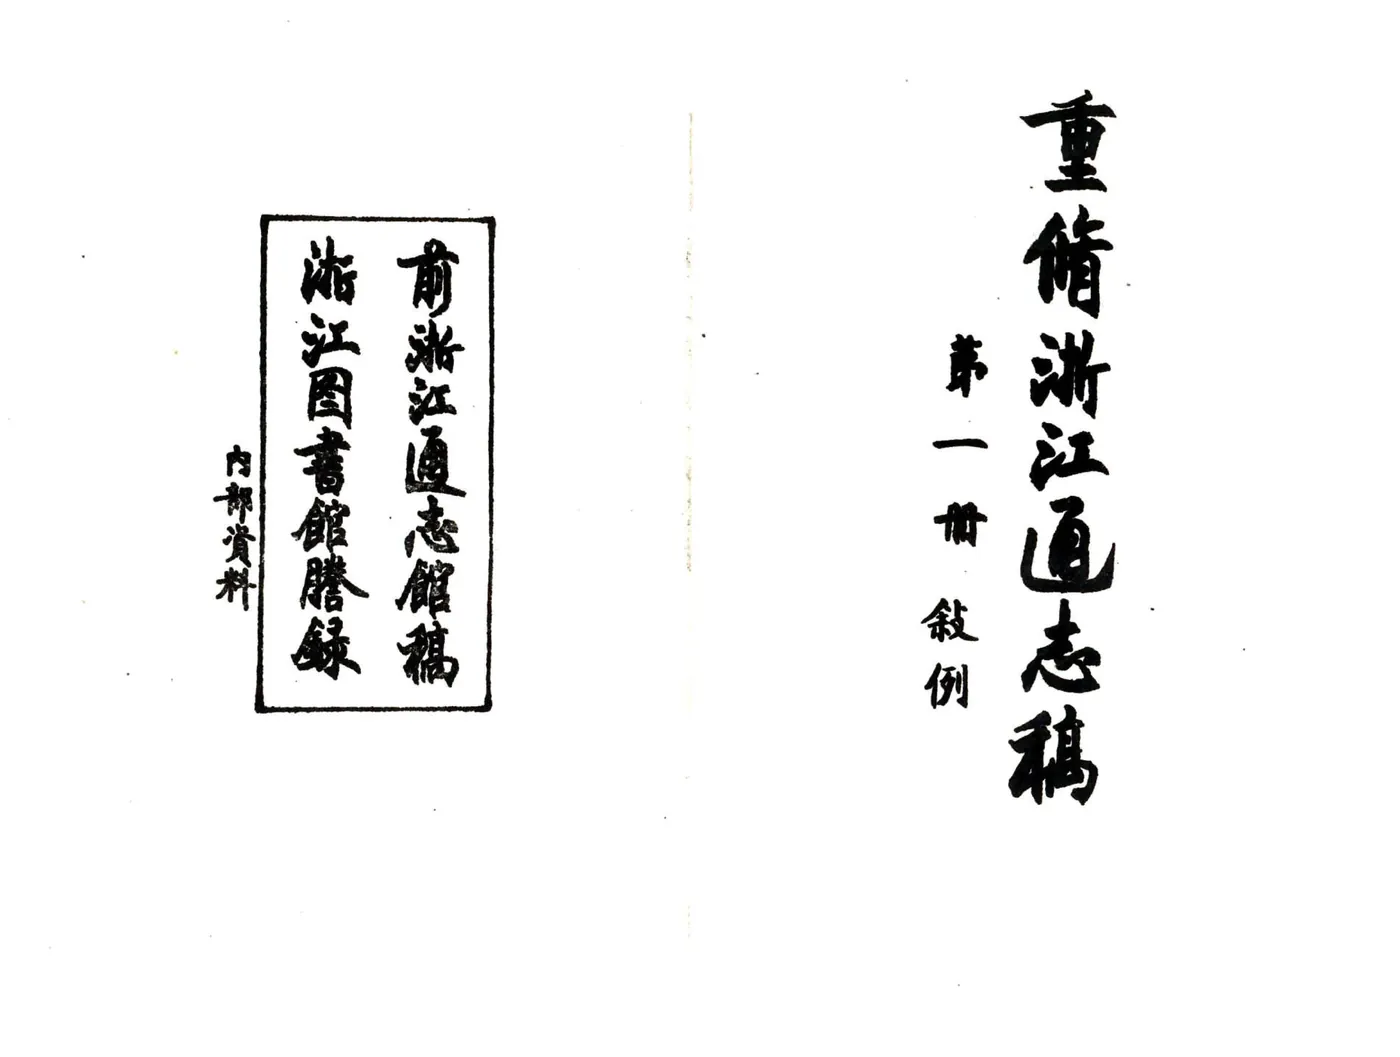 重脩浙江通志稿
第一册 敍例
前浙江通志館稿
浙江图書館謄録
内部資料